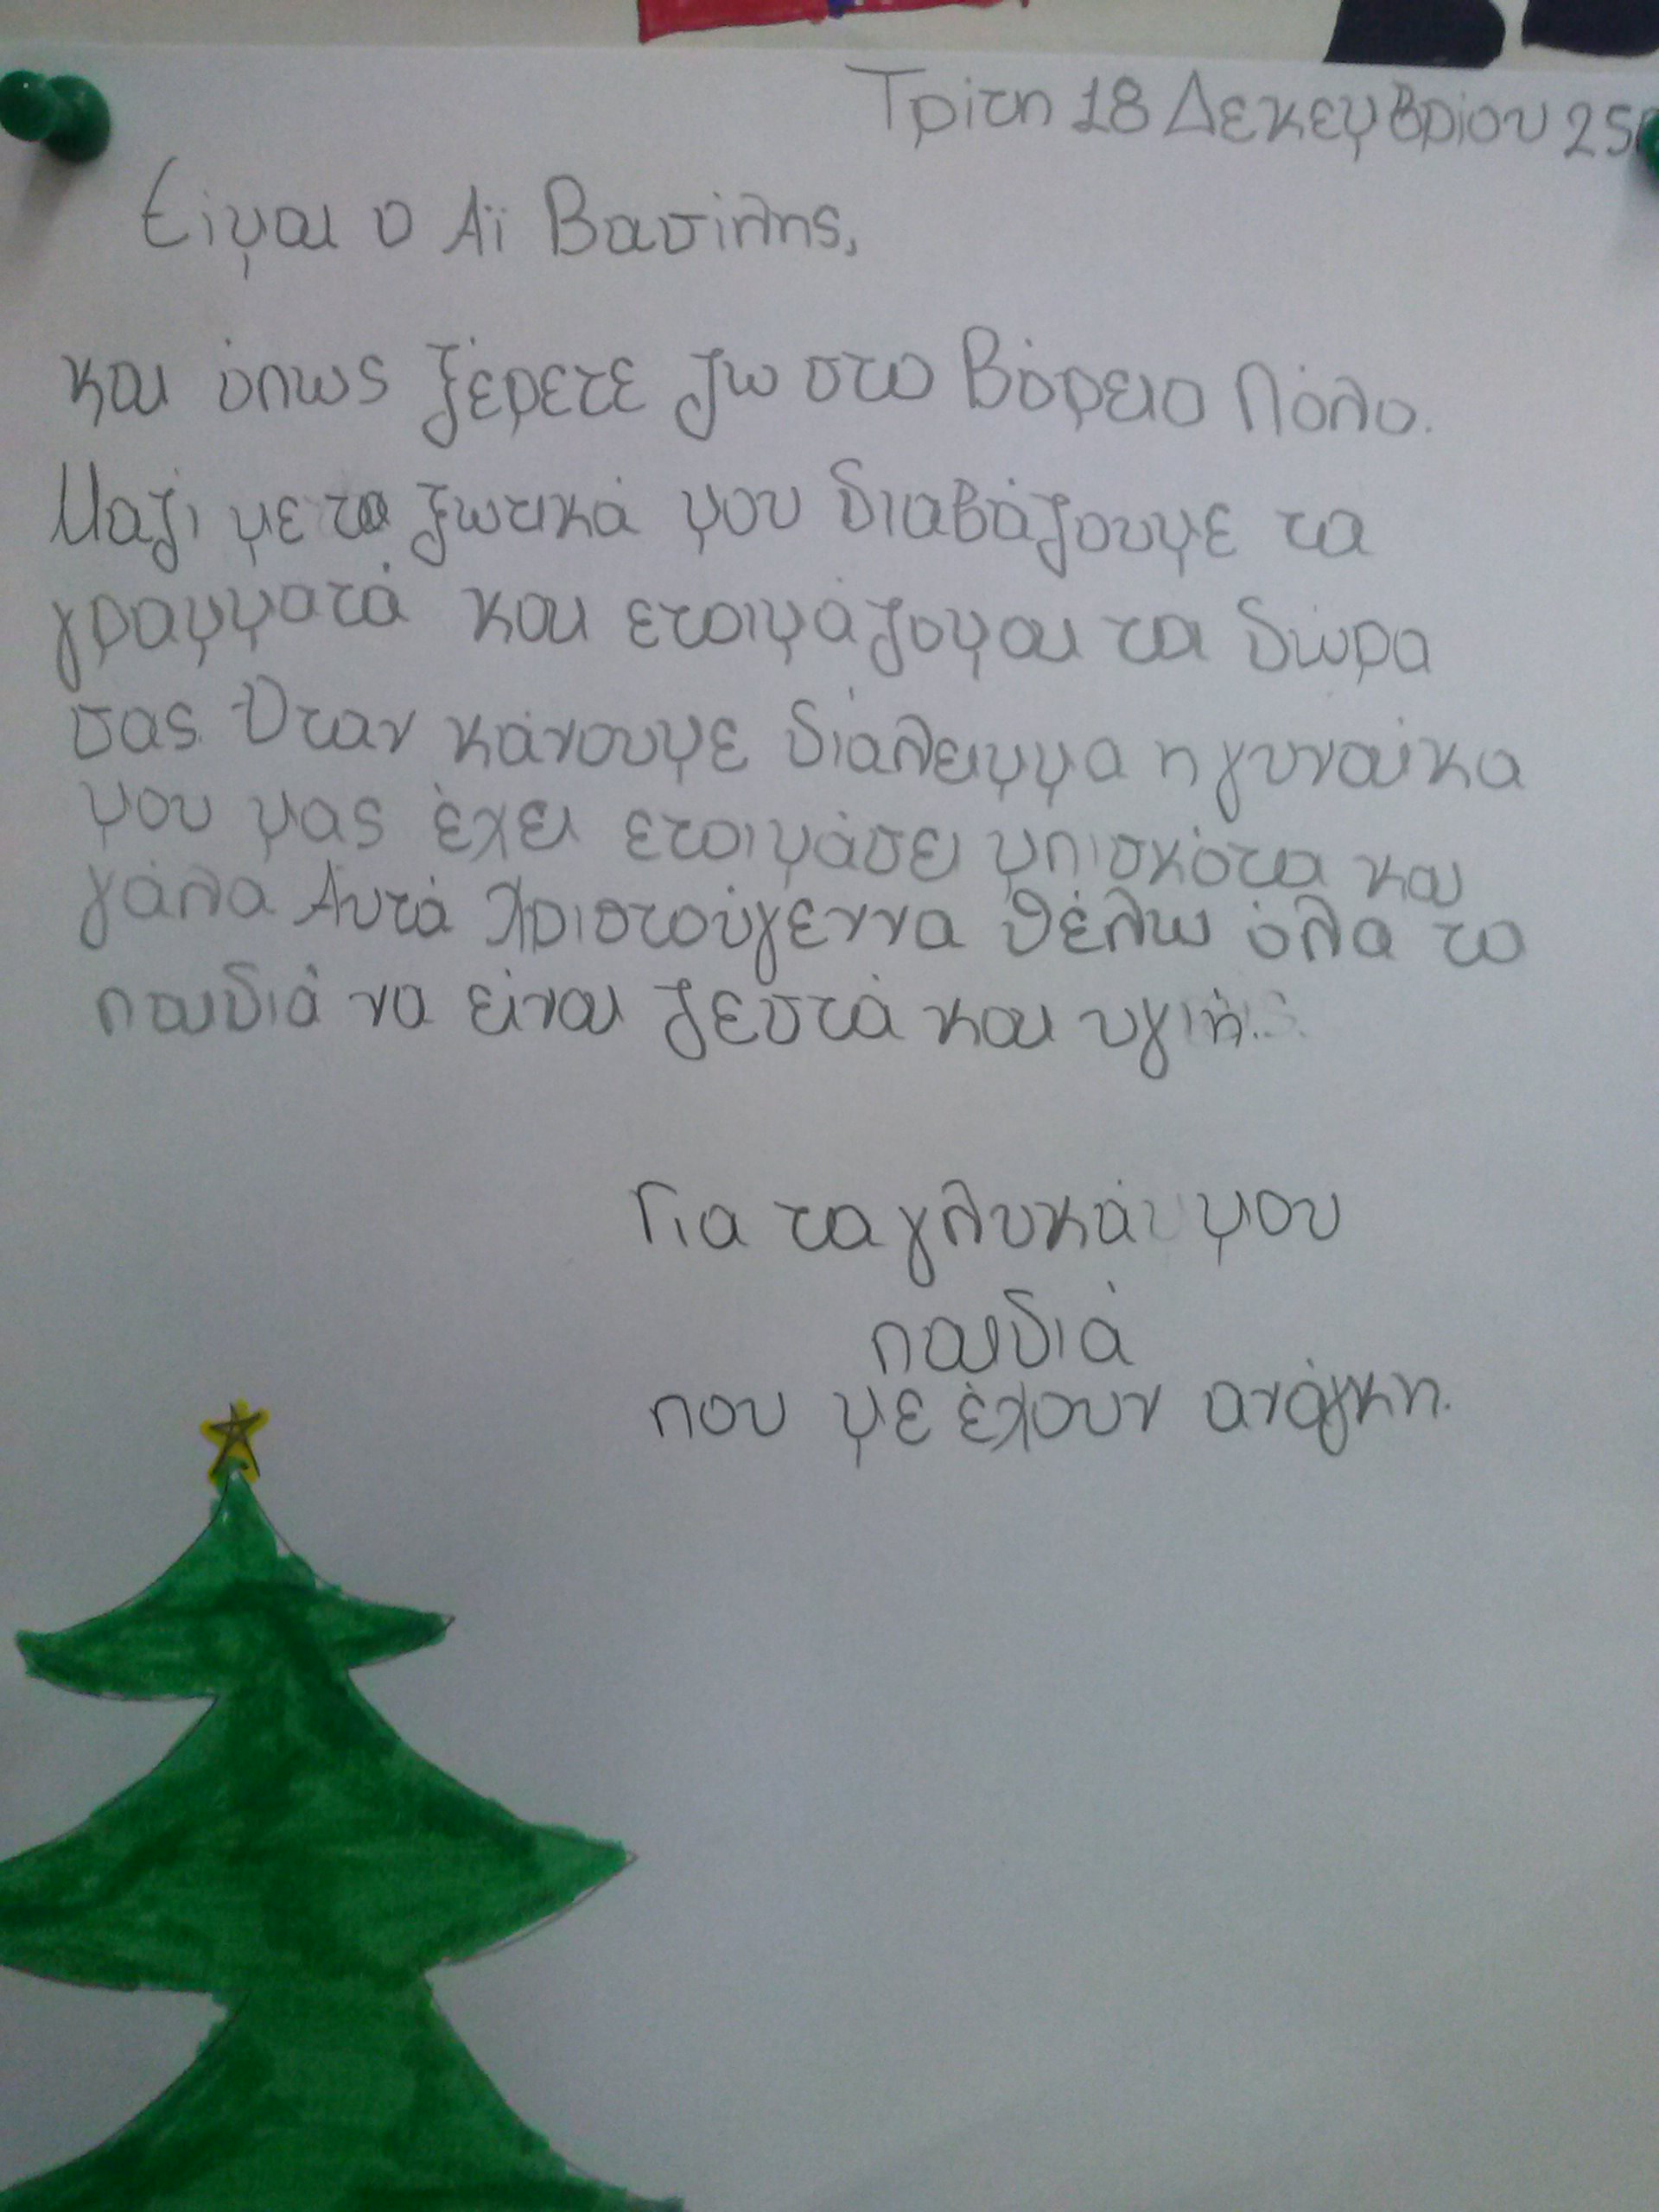 Τρίτη 18 Δεκεμβρίου 25
Είμαι ο Αϊ Βασίλης,
και όπως ξέρετε ζω στο Βόρειο Πόλο.
Μαζί με τα ξωτικά μου διαβάζουμε τα
γραμματά και ετοιμάζομαι τα δώρα
σας. Όταν κάνουμε διάλειμμα η γυναίκα
μου μας έχει ετοιμάσει μπισκότα και
γάλα Αυτά Χριστούγεννα θέλω όλα το
παιδιά να είναι ζεστά και υγιή.
Για τα γλυκά μου
παιδιά
που με έχουν ανάγκη.